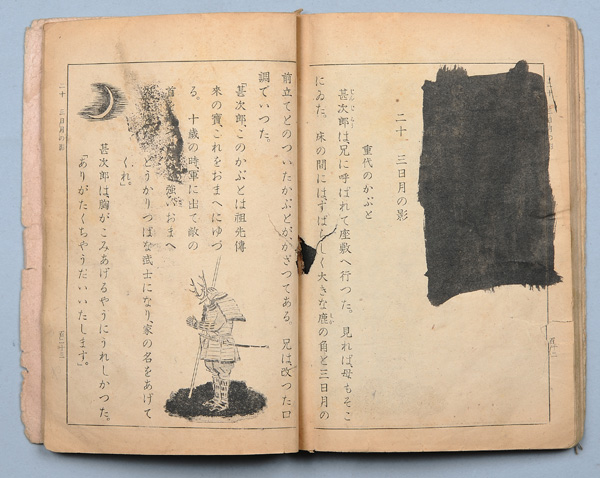 二十 三日月の影
重代のかぶと
甚次郎は、兄に呼ばれて座敷へ行つた。見れば、母もそこ
にゐた。床の間にはすばらしく大きな鹿の角と三日月の
前立てとのついたかぶとが、かざつてある。兄は、改つた口
調でいつた。
「甚次郎、このかぶとは祖先傳
來の寶、これをおまへにゆづ
る。十歳の時、軍に出て敵の
首 強いおまへ
どうかりつぱな武士になり、家の名をあげて
くれ。」
甚次郎は、胸がこみあげるやうにうれしかつた。
「ありがたくちやうだいいたします。」
二十 三日月の影
百二十三